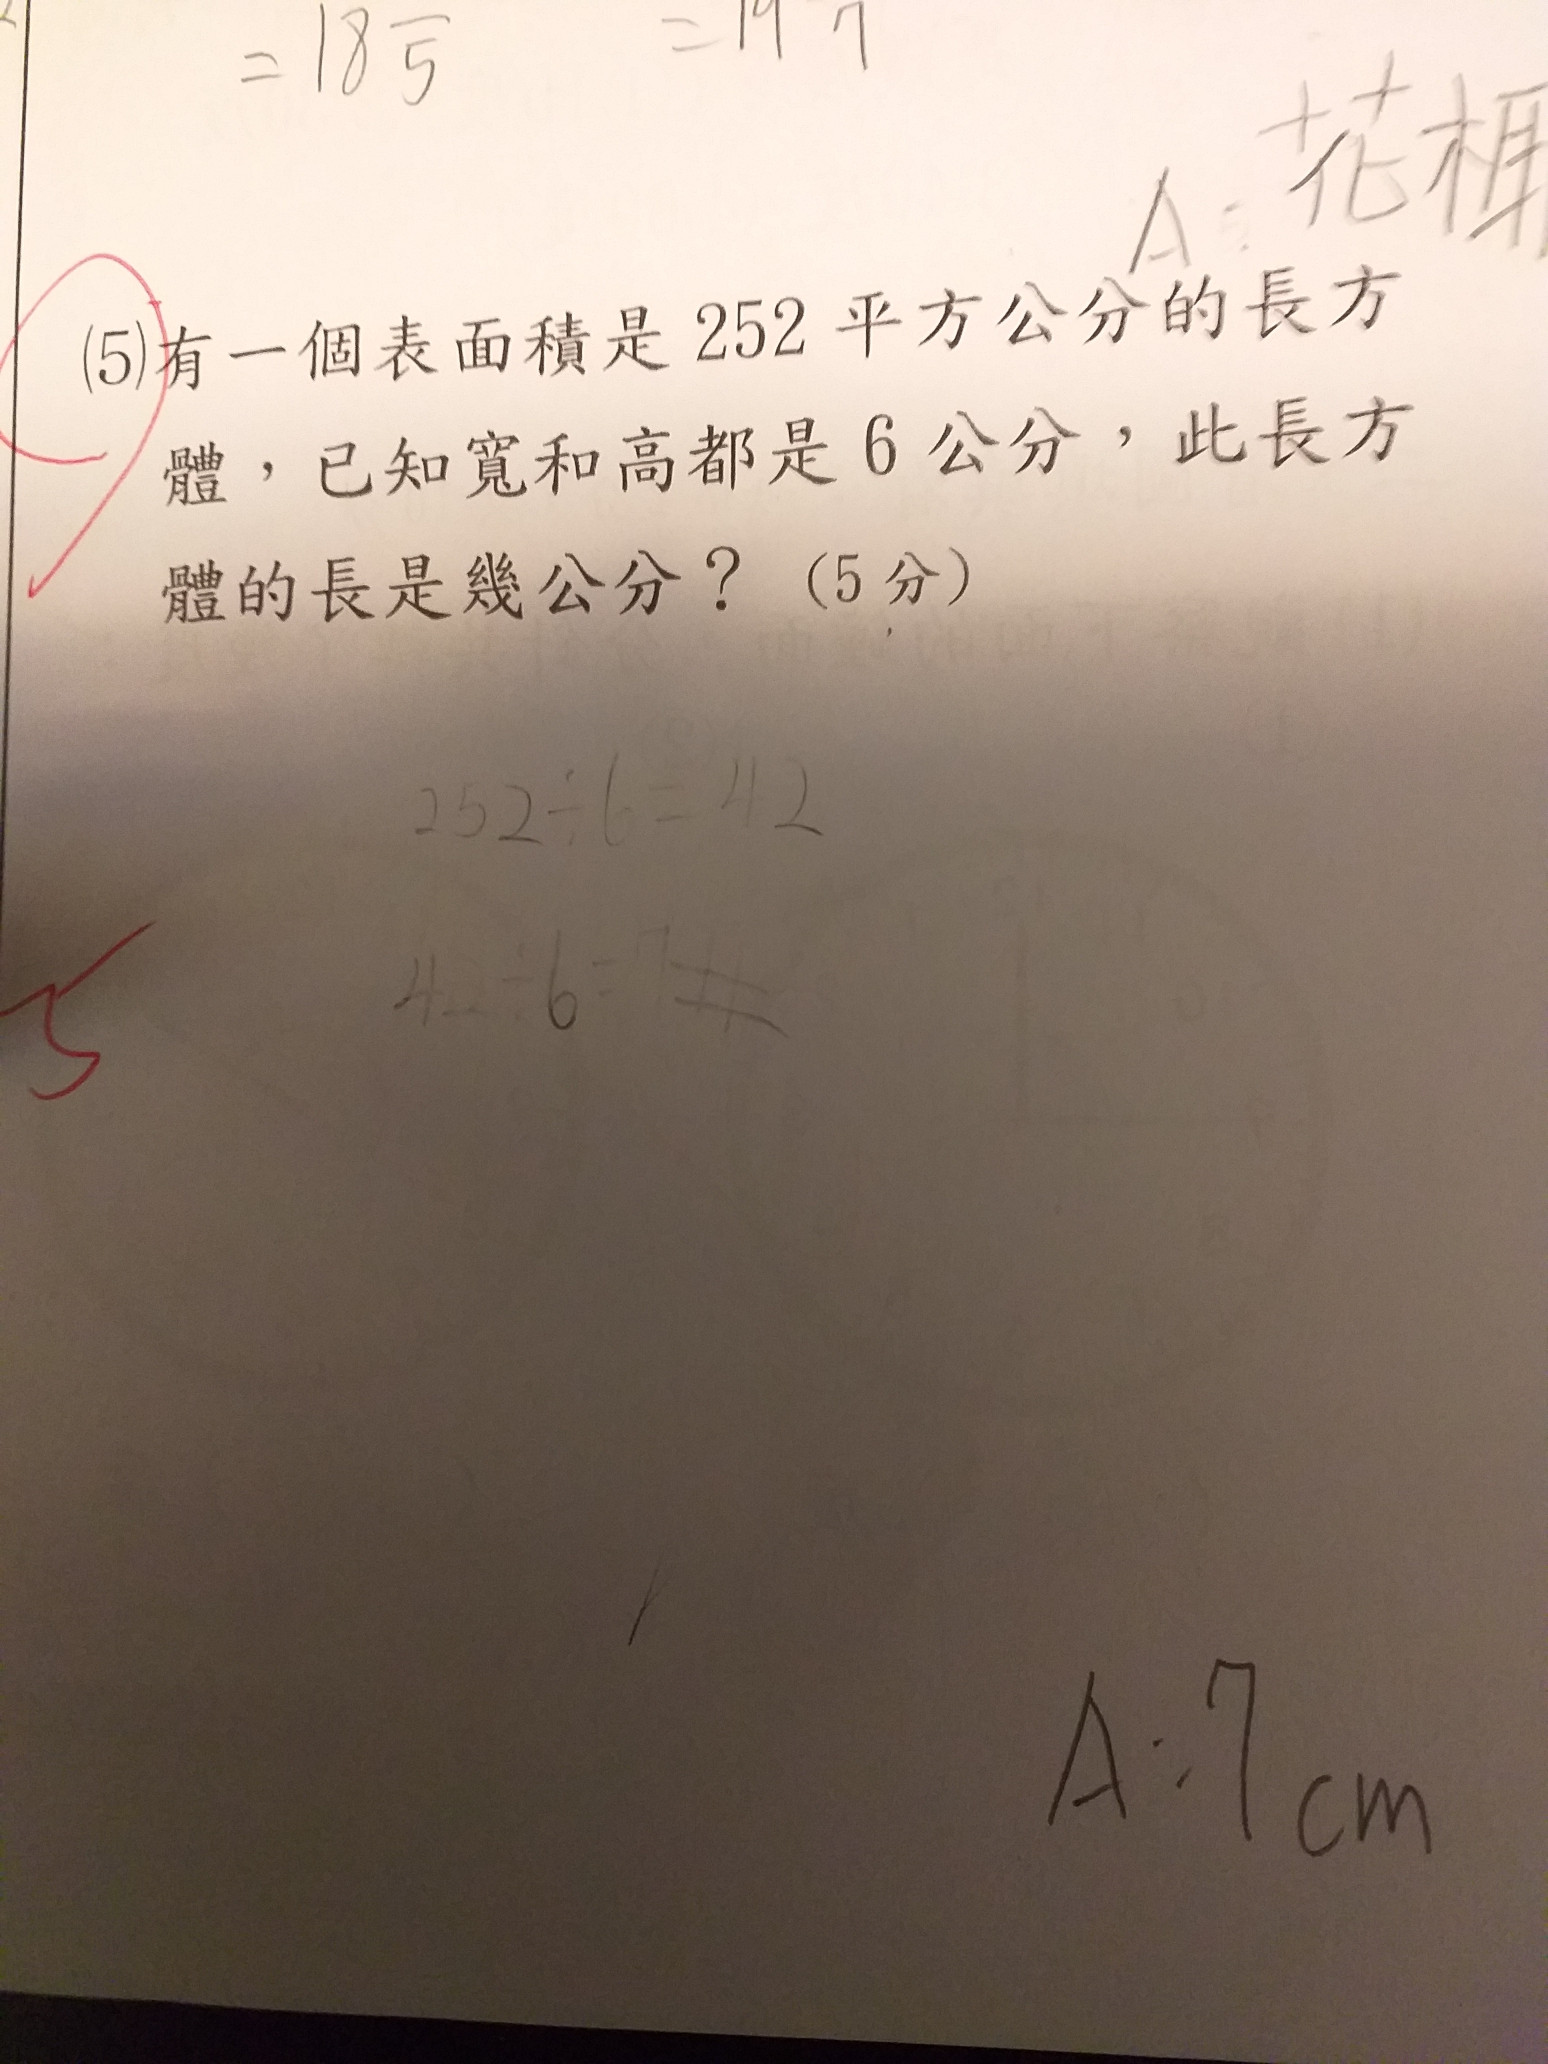 =18 5
= 7
A: 花
(5)有一個表面積是 252 平方公分的長方
體，已知寬和高都是 6 公分，此長方
體的長是幾公分？（5 分）
252÷6=42
42÷6=7
5
A:7cm